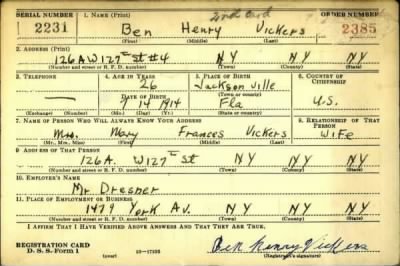 SERIAL NUMBER 1. NAME (Print) 2nd Card ORDER NUMBER
2231 Ben Henry Vickers 2385
(First) (Middle) (Last)
2. ADDRESS (Print)
126A W127th St #4 NY NY NY
(Number and street or R. F. D. number) (Town) (County) (State)
3. TELEPHONE 4. AGE IN YEARS 5. PLACE OF BIRTH 6. COUNTRY OF CITIZENSHIP
26 Jacksonville
DATE OF BIRTH (Town or county)
— 7 14 1914 Fla U.S.
(Exchange) (No.) (Mo.) (Day) (Yr.) (State or country)
7. NAME OF PERSON WHO WILL ALWAYS KNOW YOUR ADDRESS 8. RELATIONSHIP OF THAT PERSON
Mrs. Mary Frances Vickers Wife
(Mr., Mrs., Miss) (First) (Middle) (Last)
9. ADDRESS OF THAT PERSON
126A. W127th St NY NY NY
(Number and street or R. F. D. number) (Town) (County) (State)
10. EMPLOYER'S NAME
Mr Dresner
11. PLACE OF EMPLOYMENT OR BUSINESS
1479 York Av. NY NY NY
(Number and street or R. F. D. number) (Town) (County) (State)
I AFFIRM THAT I HAVE VERIFIED ABOVE ANSWERS AND THAT THEY ARE TRUE.
REGISTRATION CARD
D. S. S. Form 1 (over) Ben Henry Vickers
(Registrant's signature)